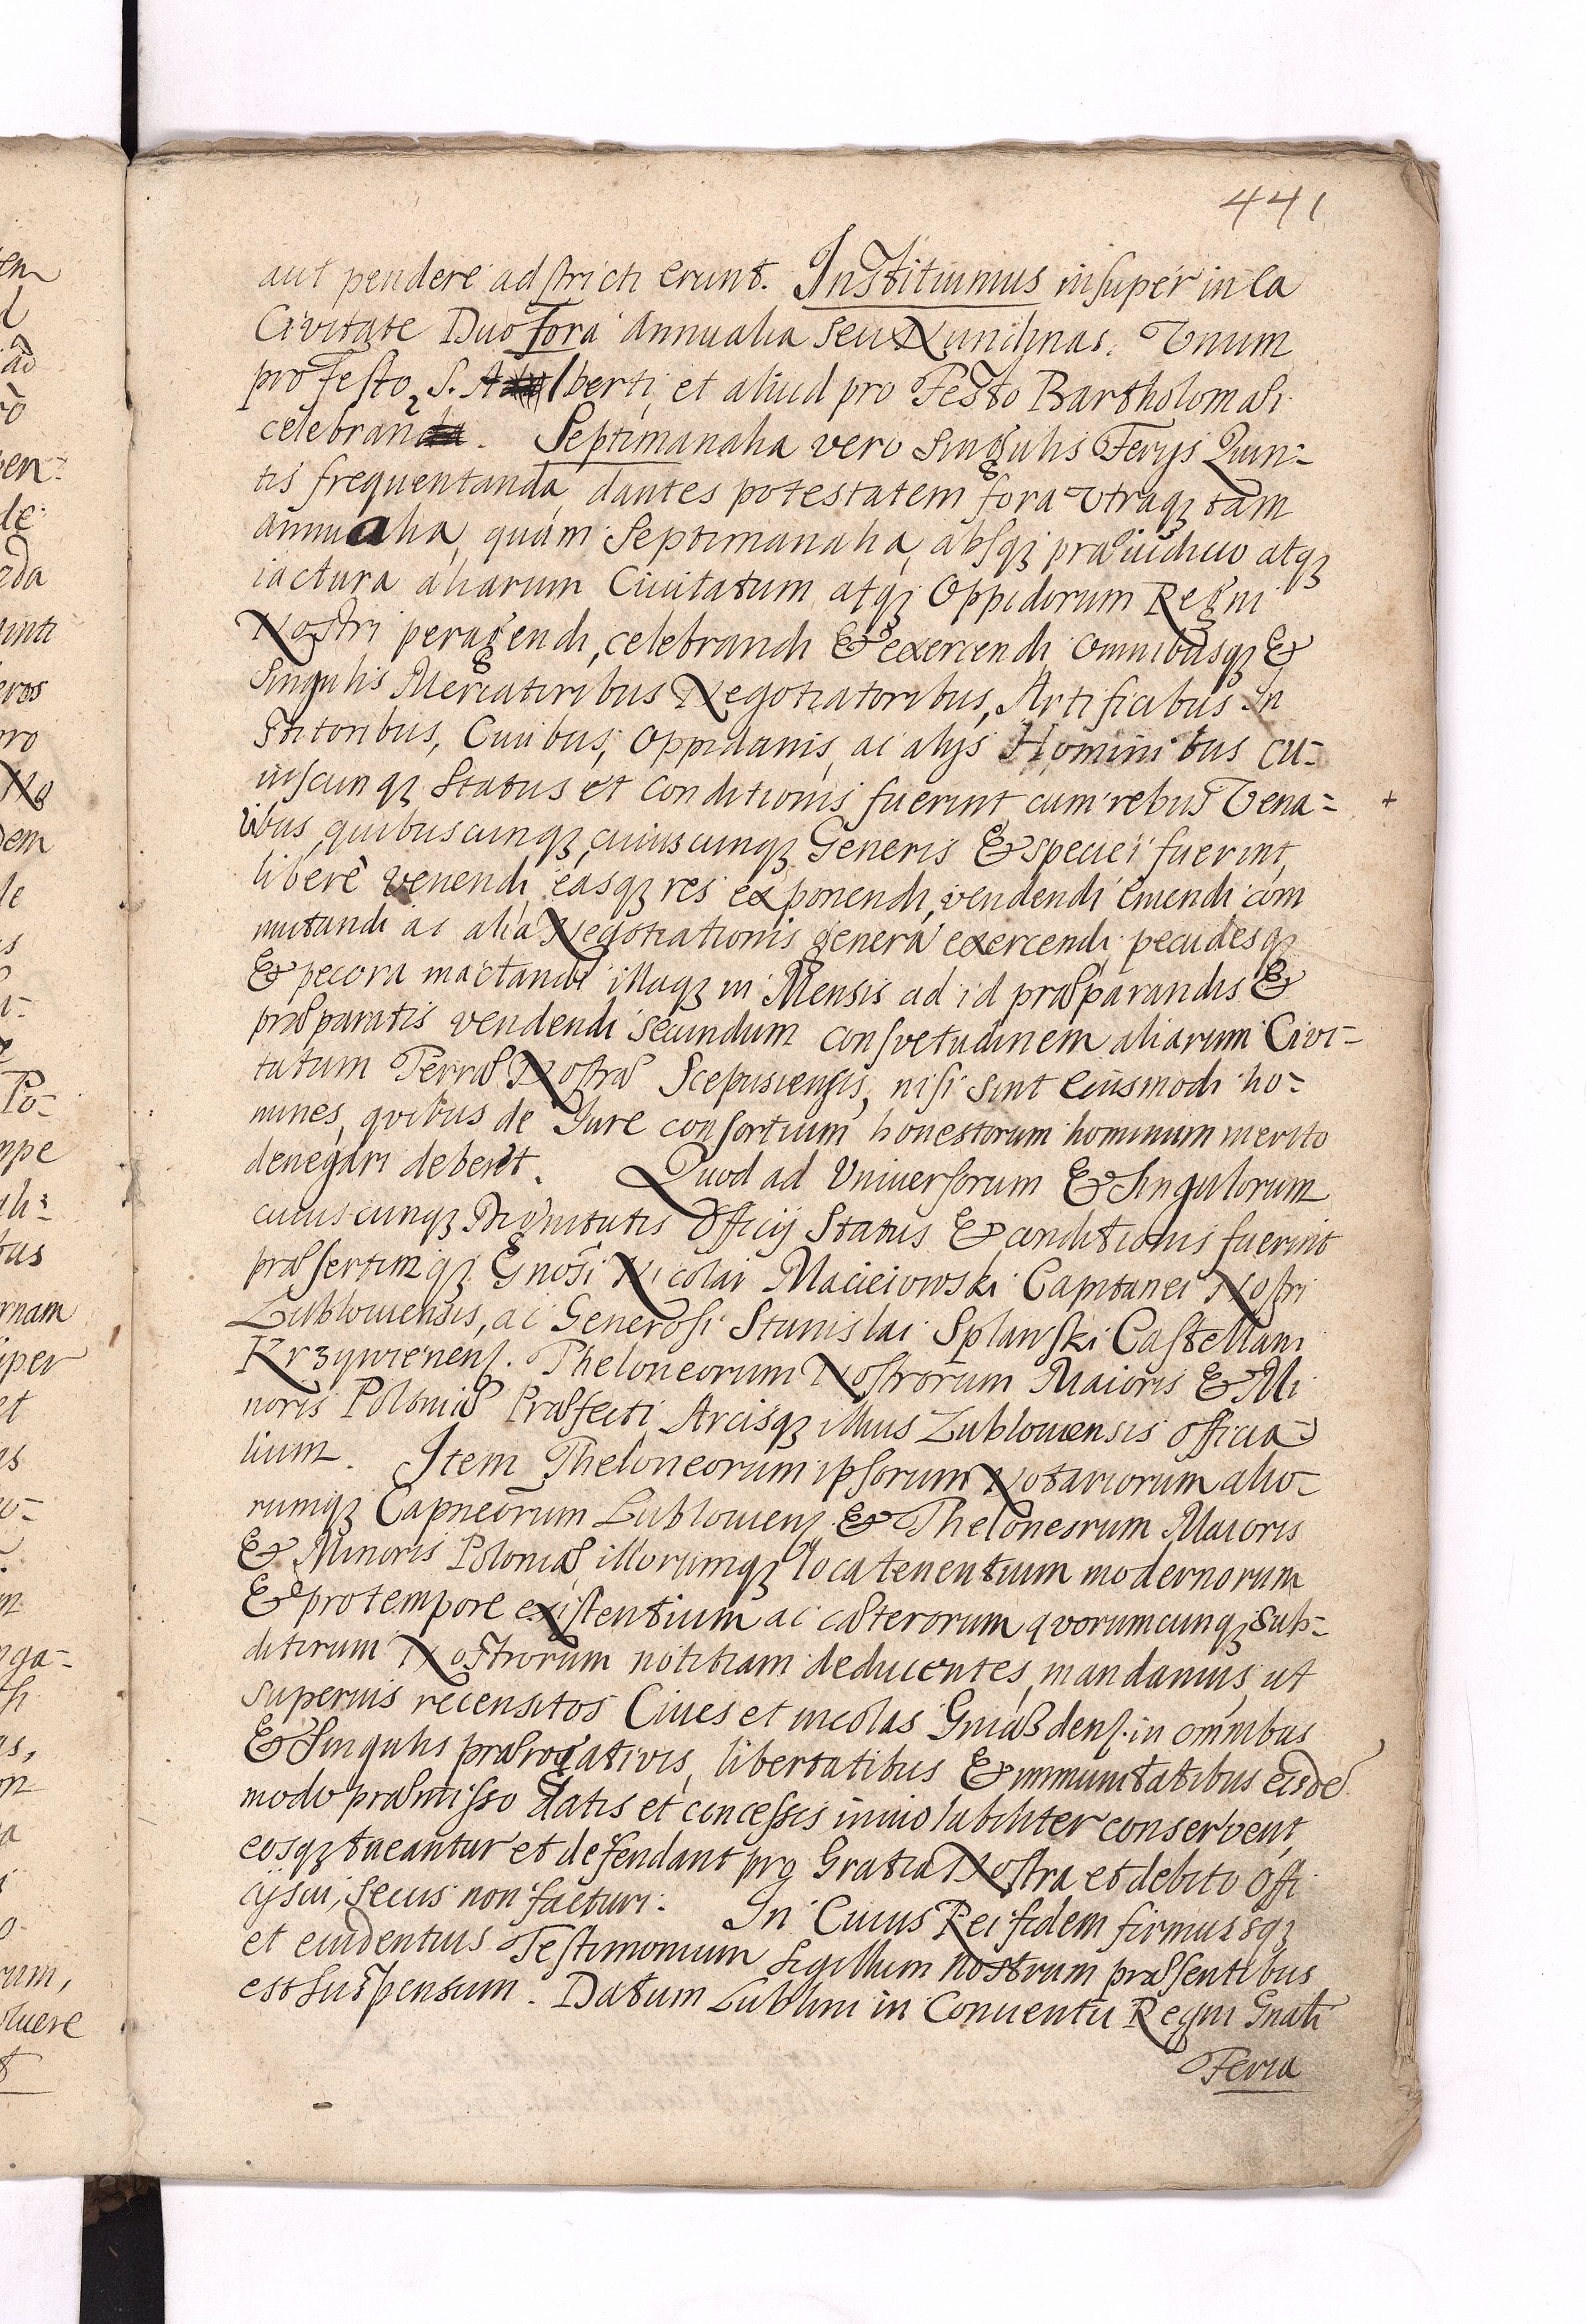 441
aut pendere adstricti erunt. Instituimus insuper in ea
Civitate Duo fora annualia seu Nundinas. Unum
pro Festo S. Alberti, et aliud pro Festo Bartholomæi
celebran. Septimanalia vero singulis Ferijs Quin-
tis frequentanda, dantes potestatem fora utraqȝ tam
annualia, quàm Septimanalia, absqȝ præiudicio atqȝ
iactura aliarum Ciuitatum atqȝ Oppidorum Regni
Nostri peragendi, celebrandi & exercendi, omnibusqȝ &
singulis Mercatoribus Negotiatoribus, Artificibus In
stitoribus, Ciuibus, Oppidanis, ac alijs Hominibus cu-
iuscunqȝ Status et conditionis fuerint cum rebus Vena= +
libus, quibuscunqȝ, cuiuscunqȝ Generis & speciei fuerint,
liberè Venendi, easqȝ res exponendi, vendendi emendi com
mutandi ac alia Negotiationis genera exercendi pecudesqȝ
& pecora mactandi illaqȝ in Mensis ad id præparandis &
præparatis vendendi secundum consvetudinem aliarum Civi-
tatum Terræ Nostræ Scepusiensis, nisi sint eiusmodi ho-
mines, quibus de Jure consortium honestorum hominum merito
denegari deberet. Quod ad Universorum & Singulorum
cuiuscunqȝ Dignitatis Officij Status & conditionis fuerint
præsertimqȝ Gnosi Nicolai Macieiowski Capitanei Nostri
Lublouiensis, ac Generosi Stanislai Splawski Castellani
Krzywienens. Theloneorum Nostrorum Maioris & Mi
noris Poloniæ Præfecti Arcisqȝ illius Lublouiensis officia-
lium. Item Theloneorum ipsorum Notariorum alio-
rumqȝ Capneorum Lublouiens. & Theloneorum Maioris
& Minoris Poloniæ, illorumqȝ locatenentium modernorum
& pro tempore existentium ac cæterorum quorumcunqȝ Sub-
ditorum Nostrorum notitiam deducentes, mandamus, ut
superius recensitos Ciues et incolas Gniaßdens. in omnibus
& Singulis prærogativis, libertatibus & immunitatibus eisdē
modo præmisso datis et concessis inviolabiliter conservent,
eosqȝ tueantur et defendant pro Gratia Nostra et debito Offi
cij sui, secus non facturi. In Cuius Rei fidem firmiusqȝ
et euidentius Testimonium Sigillum nostrum præsentibus
est suspensum. Datum Lublini in Conuentu Regni Gnali
Feria